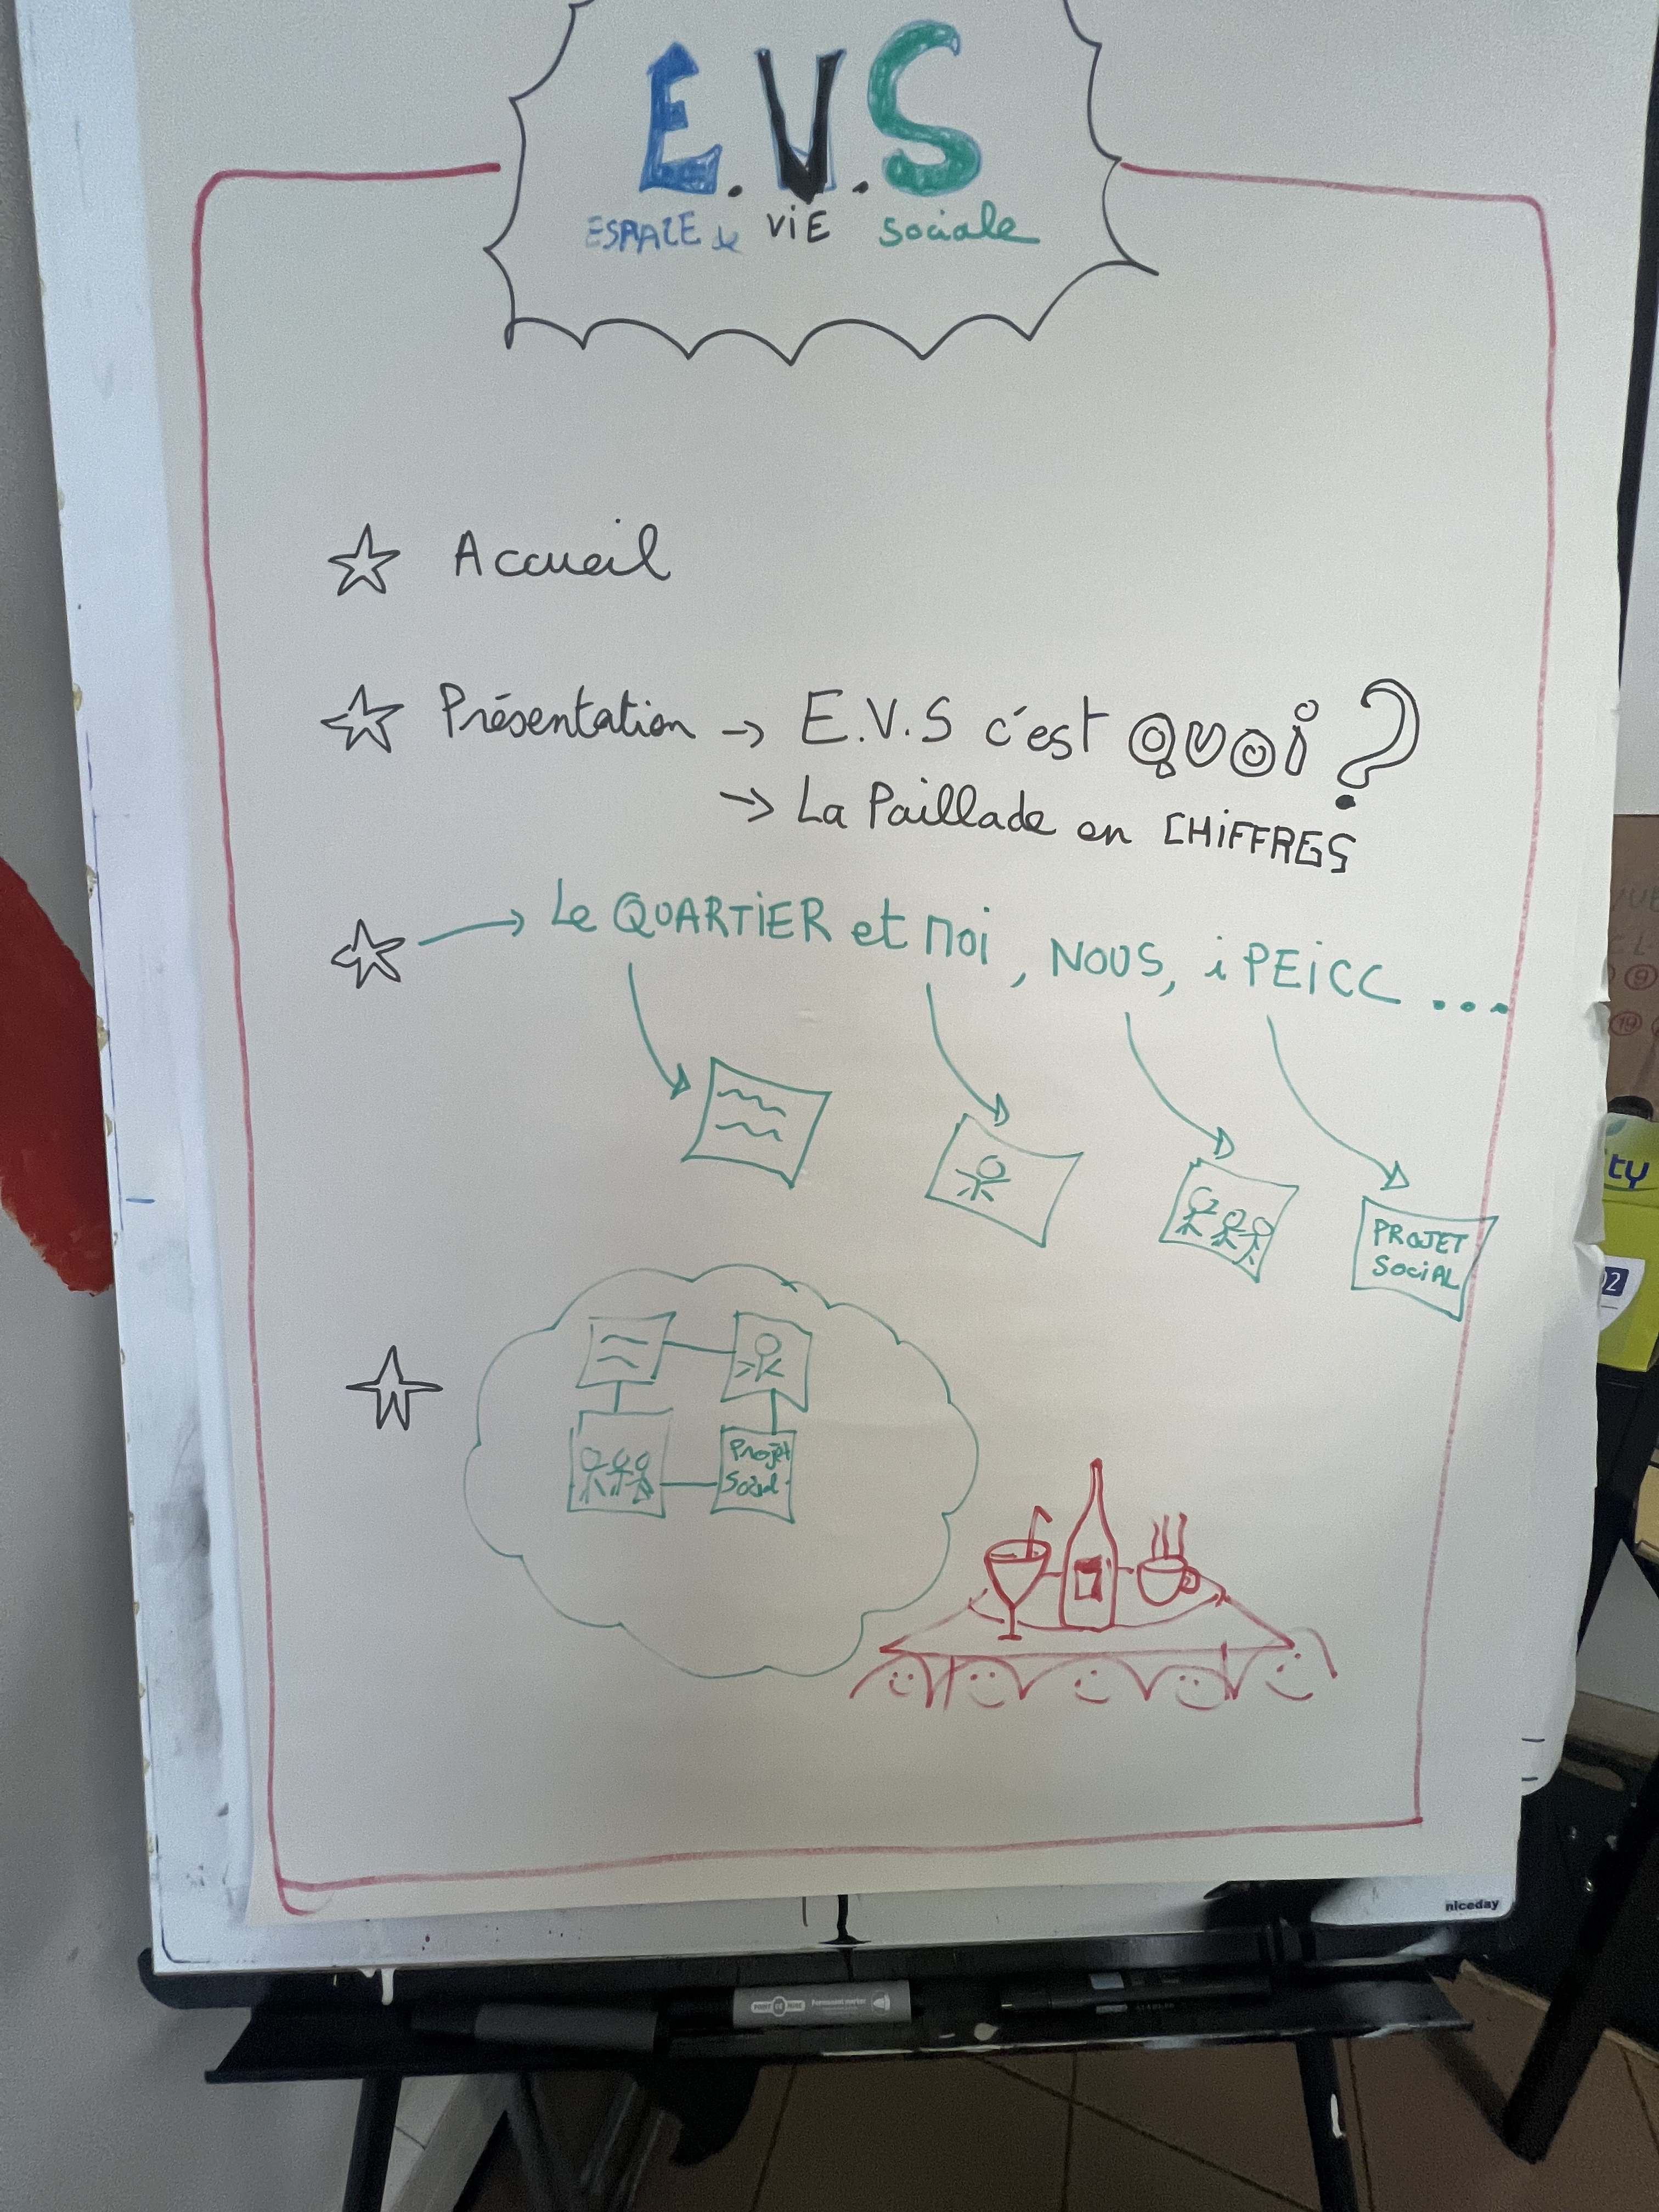 E.V.S
ESPACE de ViE Sociale
Accueil
Présentation → E.V.S c'est QUOi ?
→ La Paillade en CHiFFRES
→ Le QUARTiER et Moi, NOUS, i PEiCC ...
PROJET
SOCiAL
Projet
Social
ty
02
niceday
Permanent marker